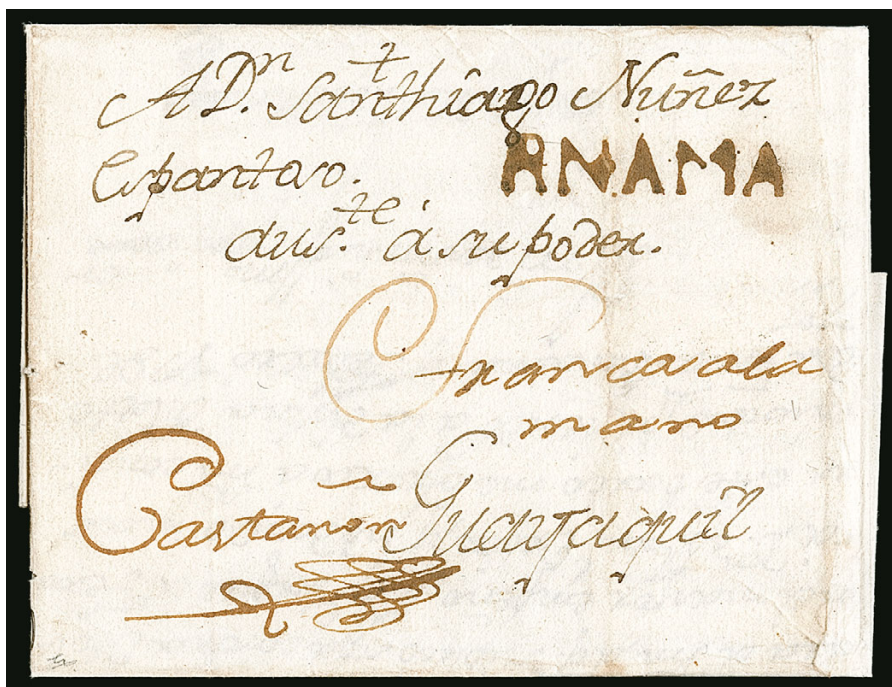 A Dn. Santhiago Nuñez
Espantoso.
PANAMA
a su poder.
Franca a la
mano
Castañon
Guayaquil